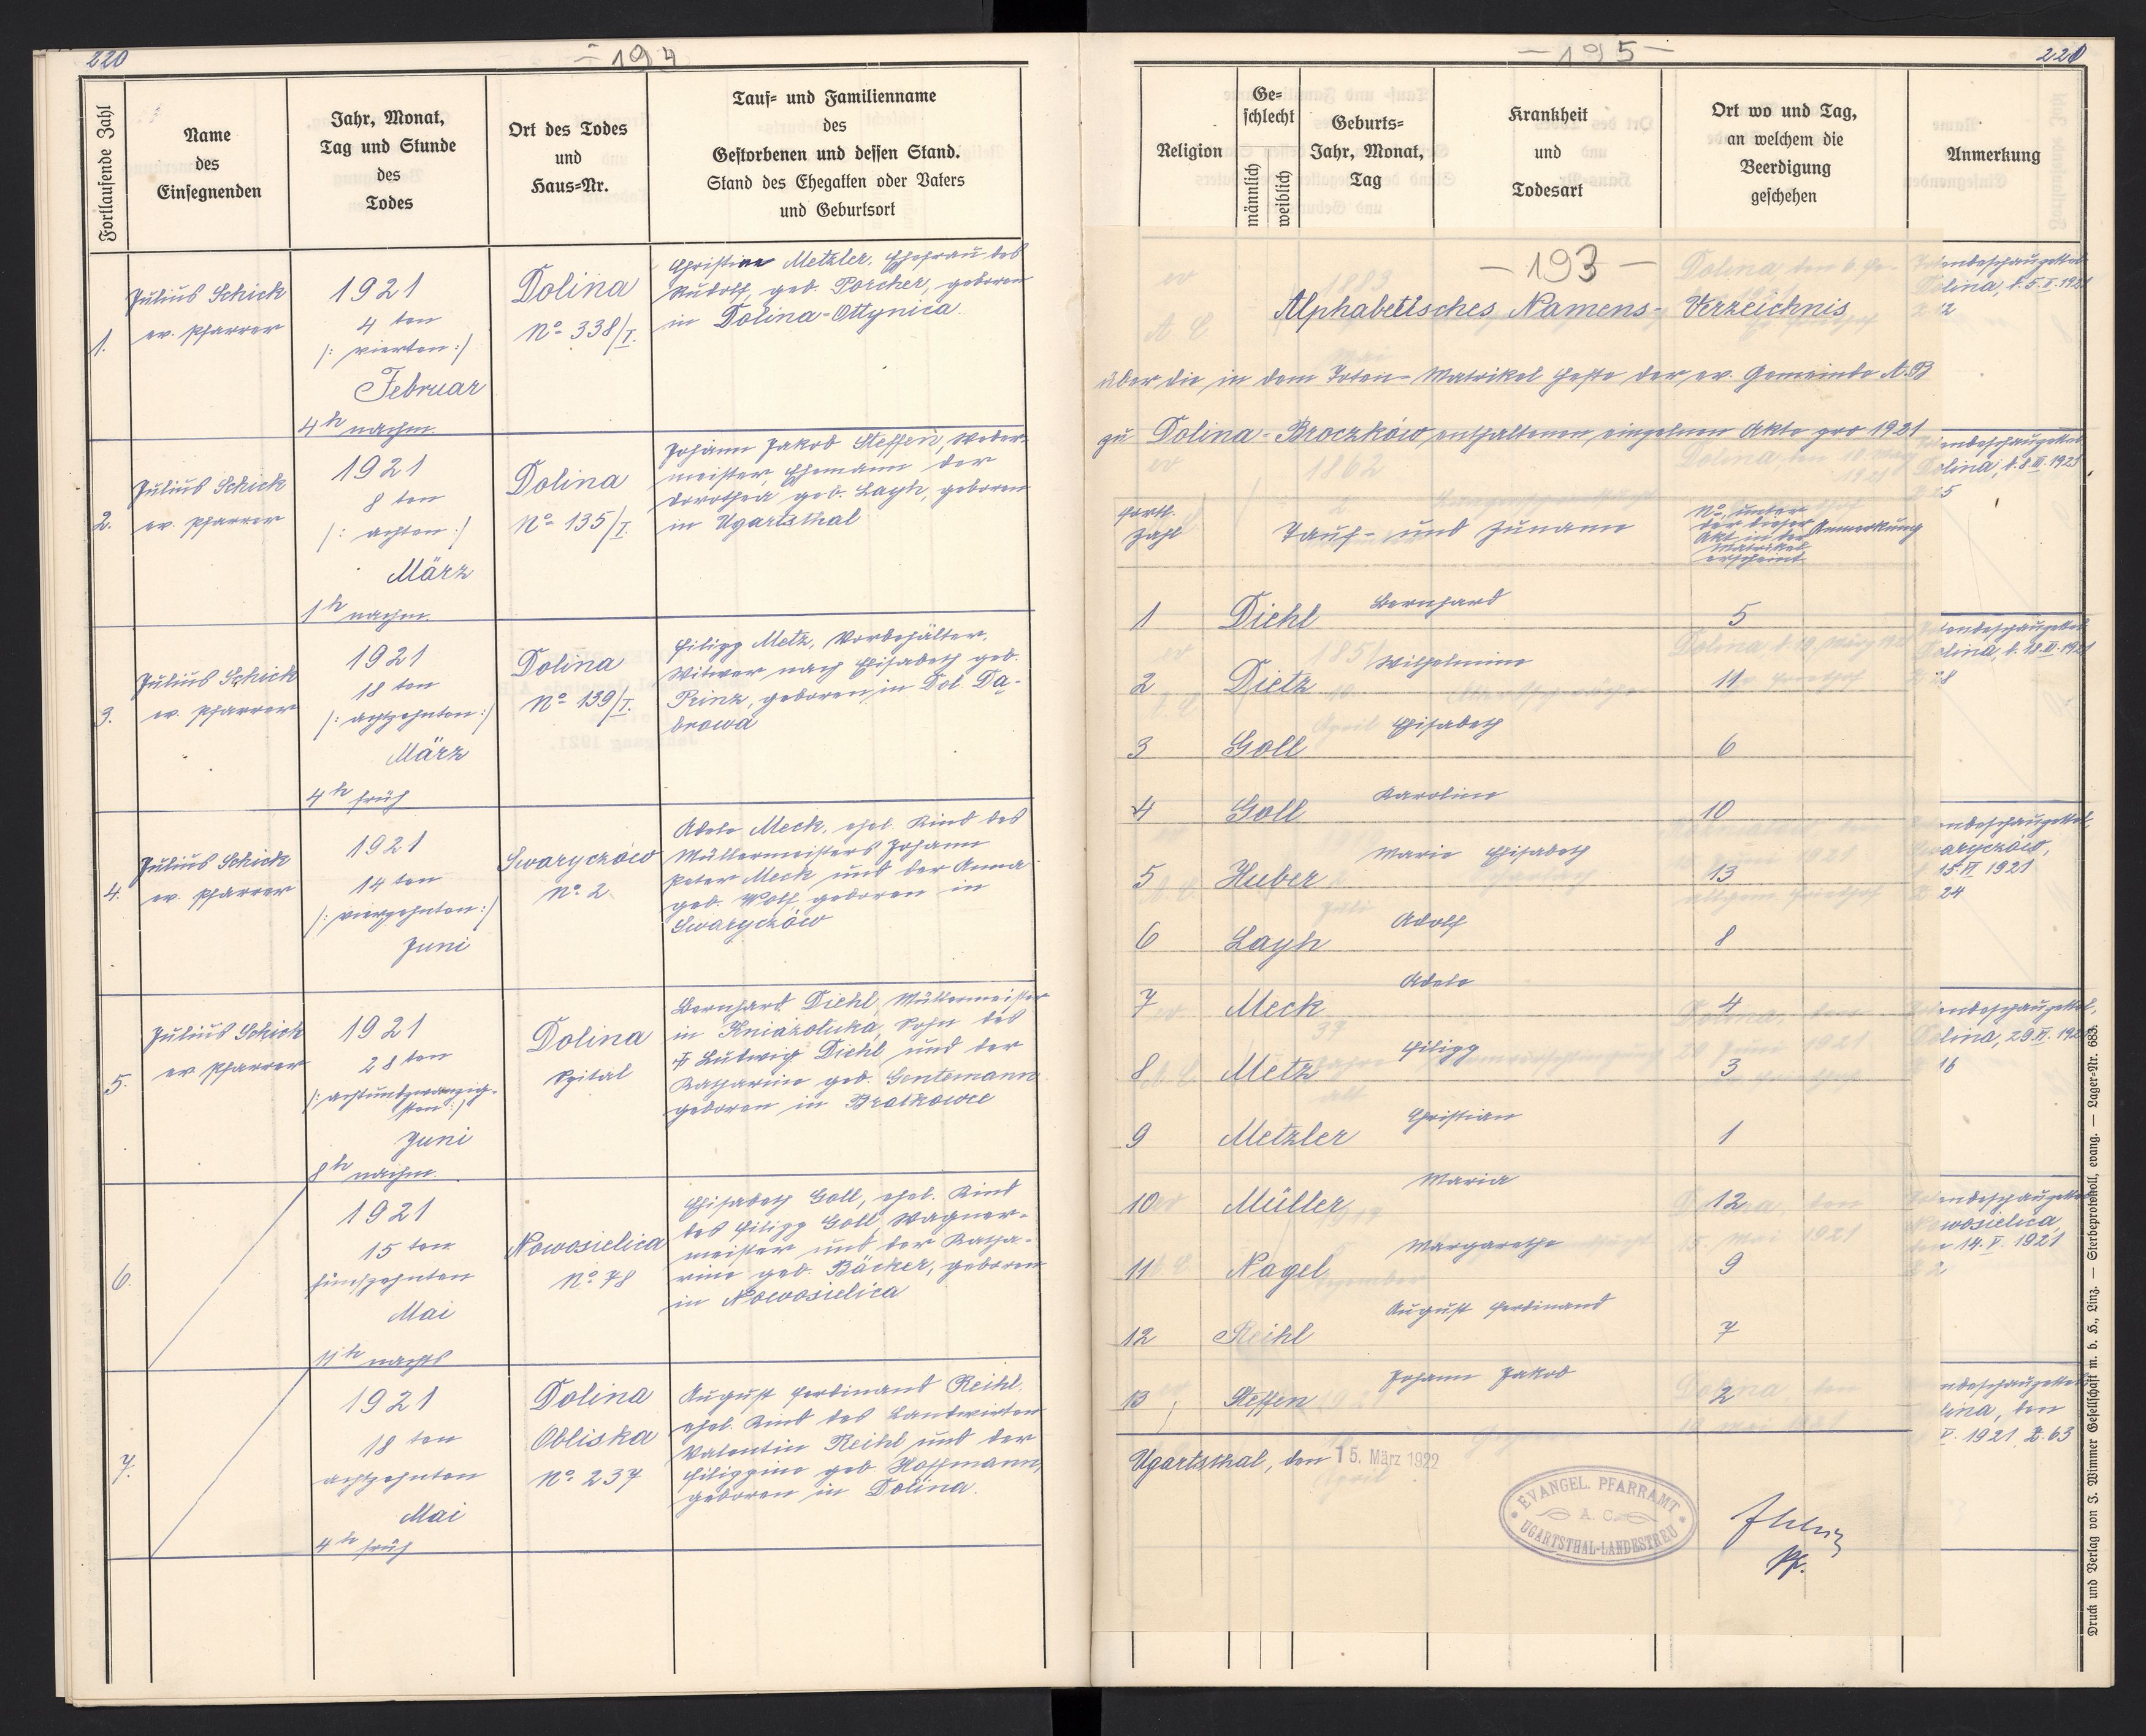 220
- 194
Fortlaufende Zahl
Name
des
Einsegnenden
Jahr, Monat,
Tag und Stunde
des
Todes
Ort des Todes
und
Haus-Nr.
Tauf- und Familienname
des
Gestorbenen und dessen Stand.
Stand des Ehegatten oder Vaters
und Geburtsort
1.
Julius Schick
ev. Pfarrer
1921
4 ten
/: vierten :/
Februar
4h nachm.
Dolina
No 338/I.
Christine Metzler, Ehefrau des
Rudolf, geb. Porcher, geboren
in Dolina-Ottynica.
2.
Julius Schick
ev. Pfarrer
1921
8 ten
/: achten :/
März
1h nachm.
Dolina
No 135/I.
Johann Jakob Steffen, Weber-
meister, Ehemann der
Dorothea geb. Layh, geboren
in Ugartsthal
3.
Julius Schick
ev. Pfarrer
1921
18 ten
/: achtzehnten :/
März
4h früh
Dolina
No 139/I.
Filipp Metz, Vorbehälter,
Witwer nach Elisabeth geb.
Prinz, geboren in Dol. Dą-
browa
4.
Julius Schick
ev. Pfarrer
1921
14 ten
/: vierzehnten :/
Juni
Swaryczów
No 2
Adele Meck, ehel. Kind des
Müllermeisters Johann
Peter Meck und der Anna
geb. Wolf, geboren in
Swaryczów
5.
Julius Schick
ev Pfarrer
1921
28 ten
/: achtundzwanzig-
sten :/
Juni
8h nachm.
Dolina
Spital
Bernhard Diehl, Müllermeister
in Kniażołuka, Sohn des
Ludwig Diehl und der
Katharine geb. Gentemann
geboren in Bratkowce
6.
1921
15 ten
fünfzehnten
Mai
11h nachts
Nowosielica
No 78
Elisabeth Goll, ehel. Kind
des Filipp Goll, Wagner-
meister und der Katha-
rine geb. Bäcker, geboren
in Nowosielica
7.
1921
18 ten
achtzehnten
Mai
4h früh
Dolina
Obliska
No 237
August Ferdinand Reihl,
ehel. Kind des Landwirten
Valentin Reihl und der
Filippine geb Hoffmann,
geboren in Dolina.
- 195 -
221
Religion
Ge-
schlecht
männlich
weiblich
Geburts-
Jahr, Monat,
Tag
Krankheit
und
Todesart
Ort wo und Tag,
an welchem die
Beerdigung
geschehen
Anmerkung
- 193 -
Alphabetisches Namens-Verzeichnis
über die in dem Toten-Matrikel Hefte der ev. Gemeinde A.B
zu Dolina-Broczków enthaltenen einzelnen Akte pro 1921
Fortl.
Zahl
Tauf- und Zuname
No, unter
der dieser
Akt in der
Matrikel
erscheint
Anmerkung
1 Diehl Bernhard 5
2 Dietz Wilhelmine 11
3 Goll Elisabeth 6
4 Goll Karoline 10
5 Huber Marie Elisabeth 13
6 Layh Adolf 8
7 Meck Adele 4
8 Metz Filipp 3
9 Metzler Christian 1
10 Müller Maria 12
11 Nagel Margarethe 9
12 Reihl August Ferdinand 7
13 Steffen Johann Jakob 2
Ugartsthal, den 15. März 1922
EVANGEL. PFARRAMT
A. C.
UGARTSTHAL-LANDESTREU
Pf.
Druck und Verlag von J. Wimmer Gesellschaft m. b. H., Linz. — Sterbeprotokoll, evang. — Lager-Nr. 683.